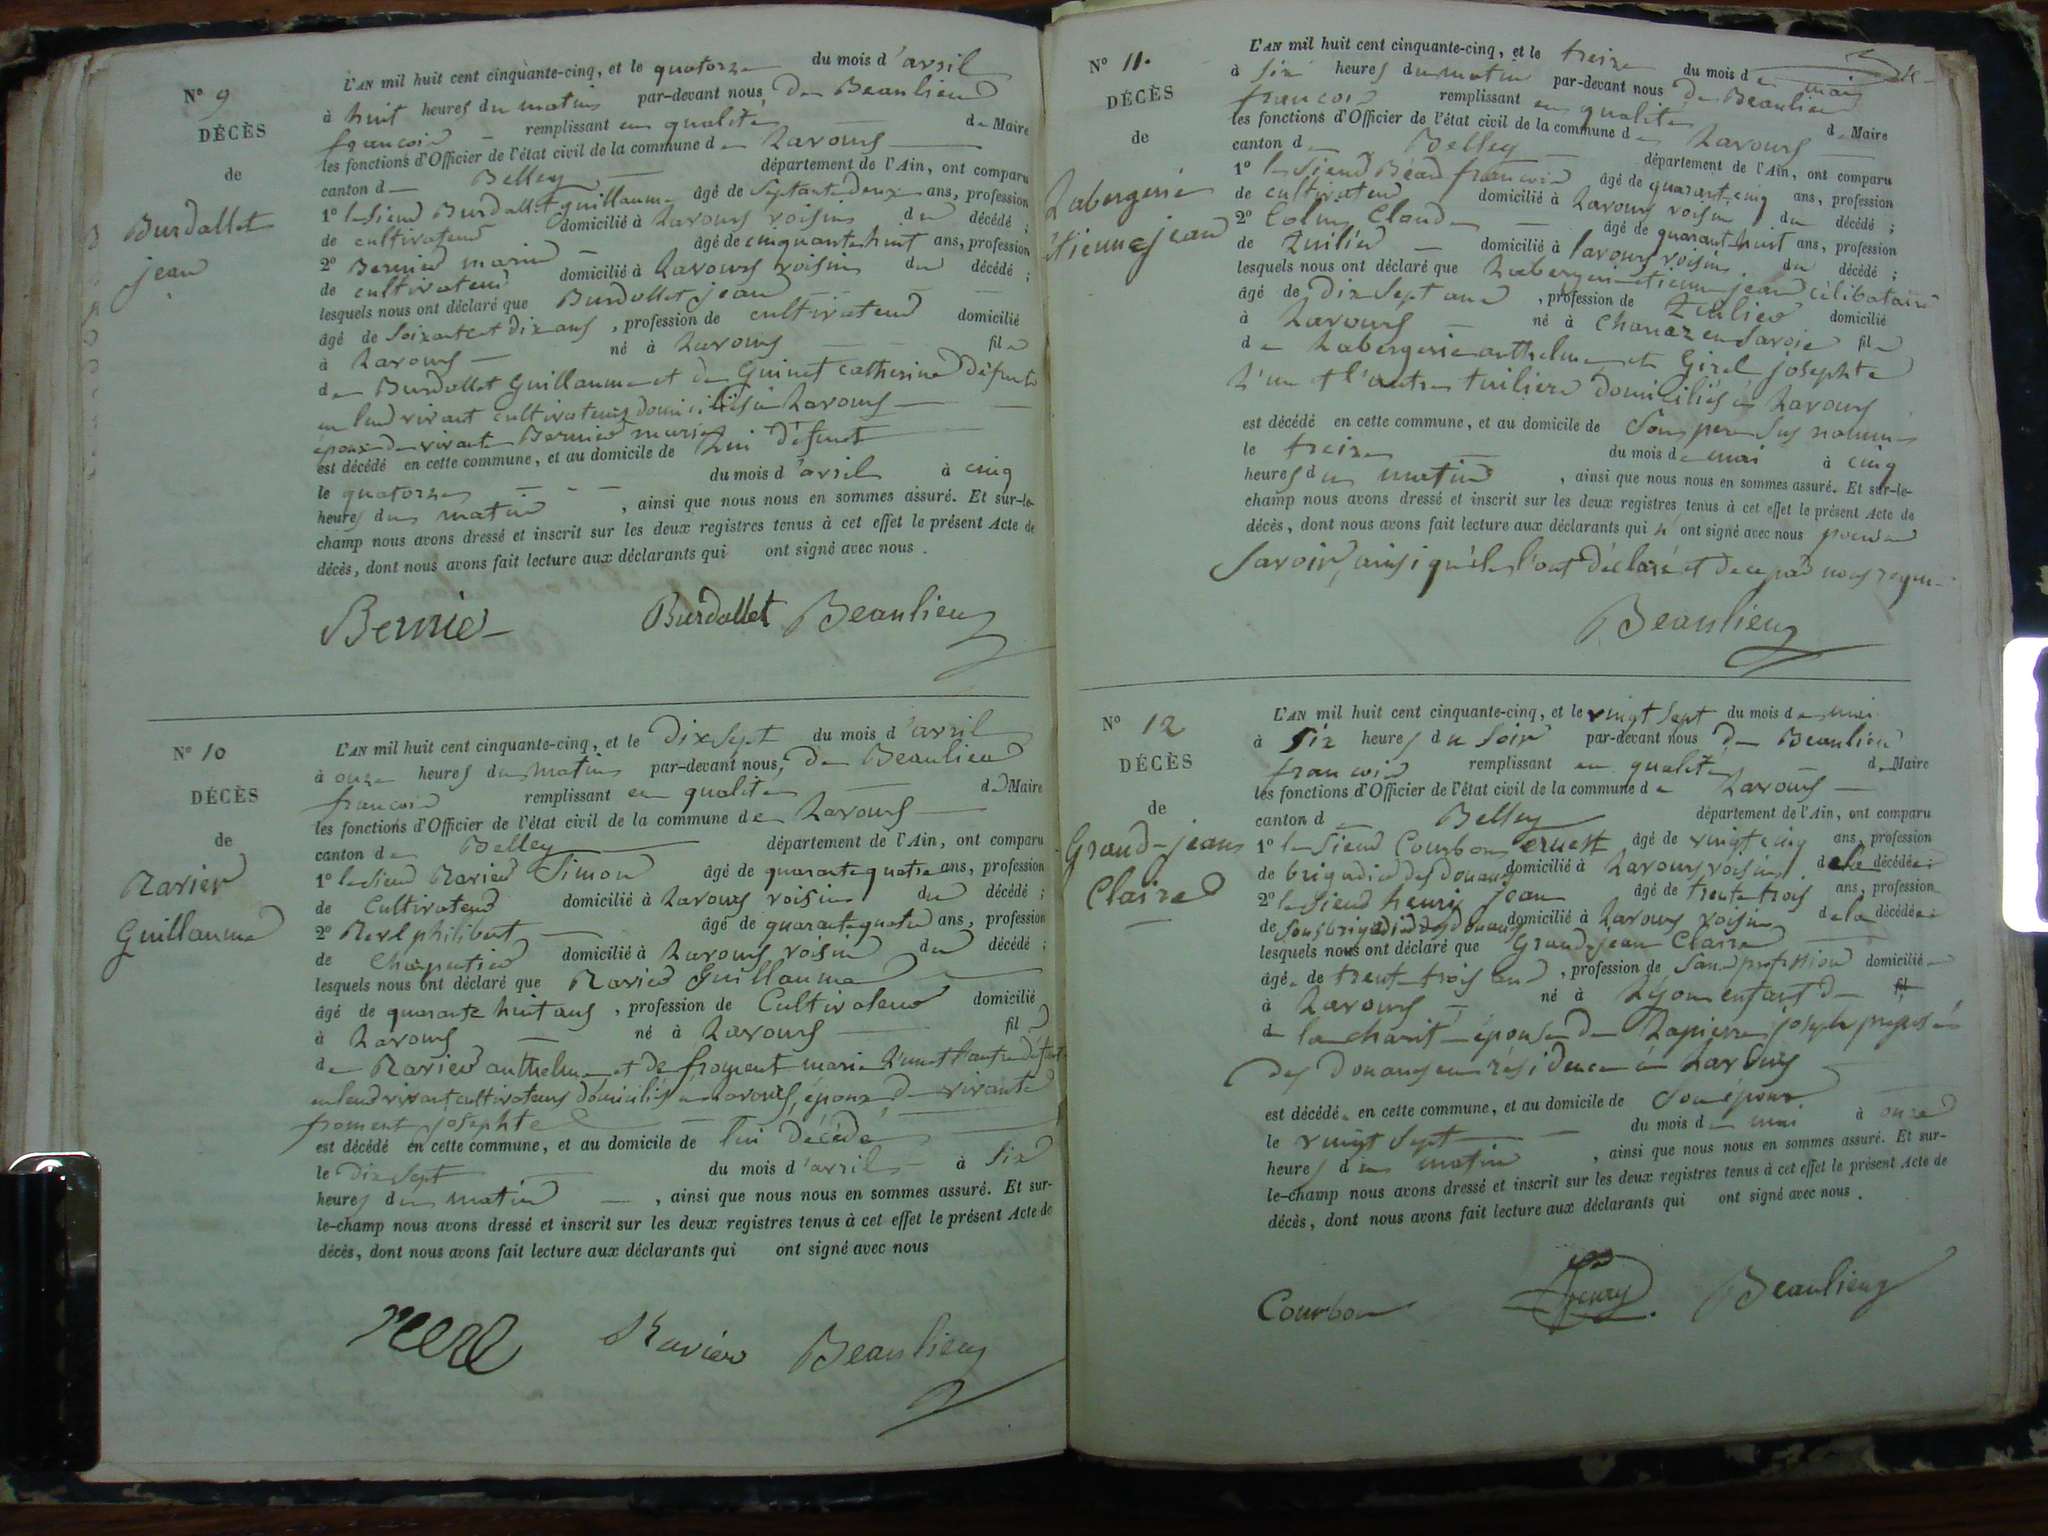 N° 9
DÉCÈS
de
Burdallet
jean
L'AN mil huit cent cinquante-cinq, et le quatorze du mois d'avril
à huit heures du matin par-devant nous, De Beaulieu
françois remplissant en qualité de Maire
les fonctions d'Officier de l'état civil de la commune de Lavours
canton de Belley département de l'Ain, ont comparu
1° le Sieur Burdallet guillaume âgé de Septante deux ans, profession
de cultivateur domicilié à Lavours voisin du décédé ;
2° Bernier marin âgé de cinquante huit ans, profession
de cultivateur domicilié à Lavours voisin du décédé ;
lesquels nous ont déclaré que Burdallet jean
âgé de Soixante et dix ans, profession de cultivateur domicilié
à Lavours né à Lavours fils
de Burdallet Guillaume et de Guinet catherine défunts
en leur vivant cultivateurs domiciliés à Lavours
époux de vivante Bernier marie
est décédé en cette commune, et au domicile de Lui défunt
le quatorze du mois d'avril à cinq
heures du matin, ainsi que nous nous en sommes assuré. Et sur-le-
champ nous avons dressé et inscrit sur les deux registres tenus à cet effet le présent Acte de
décès, dont nous avons fait lecture aux déclarants qui ont signé avec nous.
Bernier Burdallet Beaulieu
N° 10
DÉCÈS
de
Ravier
Guillaume
L'AN mil huit cent cinquante-cinq, et le Dix Sept du mois d'avril
à onze heures du matin par-devant nous, De Beaulieu
françois remplissant en qualité de Maire
les fonctions d'Officier de l'état civil de la commune de Lavours
canton de Belley département de l'Ain, ont comparu
1° le Sieur Ravier Simon âgé de quarante quatre ans, profession
de Cultivateur domicilié à Lavours voisin du décédé ;
2° Rerl philibert âgé de quarante quatre ans, profession
de Charpentier domicilié à Lavours voisin du décédé ;
lesquels nous ont déclaré que Ravier Guillaume
âgé de quarante huit ans, profession de Cultivateur domicilié
à Lavours né à Lavours fils
de Ravier anthelme et de froment marie L'un et l'autre défunts
en leur vivant cultivateurs domiciliés à Lavours, époux de vivante
froment josephte
est décédé en cette commune, et au domicile de lui décédé
le Dix Sept du mois d'avril à Six
heures du matin, ainsi que nous nous en sommes assuré. Et sur-
le-champ nous avons dressé et inscrit sur les deux registres tenus à cet effet le présent Acte de
décès, dont nous avons fait lecture aux déclarants qui ont signé avec nous
Ravier Beaulieu
N° 11.
DÉCÈS
de
Labergerie
Etienne jean
L'AN mil huit cent cinquante-cinq, et le treize du mois de mai
à Six heures du matin par-devant nous De Beaulieu
françois remplissant en qualité de Maire
les fonctions d'Officier de l'état civil de la commune de Lavours
canton de Belley département de l'Ain, ont comparu
1° le Sieur Béard françois âgé de quarante cinq ans, profession
de cultivateur domicilié à Lavours voisin du décédé ;
2° Colin Claude âgé de quarante huit ans, profession
de Tuilier domicilié à lavours voisin du décédé ;
lesquels nous ont déclaré que Labergerie etienne jean célibataire
âgé de dix Sept ans, profession de Tuilier domicilié
à Lavours né à Chanaz en Savoie fils
de Labergerie anthelme et Girel josephte
L'un et l'autre tuiliers domiciliés à Lavours
est décédé en cette commune, et au domicile de Son père Sus nommé
le treize du mois de mai à cinq
heures du matin, ainsi que nous nous en sommes assuré. Et sur-le-
champ nous avons dressé et inscrit sur les deux registres tenus à cet effet le présent Acte de
décès, dont nous avons fait lecture aux déclarants qui n'ont signé avec nous pour ne
Savoir, ainsi qu'ils l'ont déclaré et de ce par nous requis
Beaulieu
N° 12
DÉCÈS
de
Grand-jean
Claire
L'AN mil huit cent cinquante-cinq, et le vingt Sept du mois de mai
à Six heures du Soir par-devant nous De Beaulieu
françois remplissant en qualité de Maire
les fonctions d'Officier de l'état civil de la commune de Lavours
canton de Belley département de l'Ain, ont comparu
1° le Sieur Courbon ernest âgé de vingt cinq ans, profession
de brigadier des Douanes domicilié à Lavours voisin de la décédée ;
2° le Sieur henry jean âgé de trente trois ans, profession
de Sous brigadier des Douanes domicilié à Lavours voisin de la décédée ;
lesquels nous ont déclaré que Grand-jean Claire
âgée de trente trois ans, profession de Sans profession domiciliée
à Lavours né à Lyon enfant de fil
de la charité épouse de Lapierre joseph préposé
des Douanes en résidence à Lavours
est décédée en cette commune, et au domicile de Son époux
le vingt Sept du mois de mai à onze
heures du matin, ainsi que nous nous en sommes assuré. Et sur-
le-champ nous avons dressé et inscrit sur les deux registres tenus à cet effet le présent Acte de
décès, dont nous avons fait lecture aux déclarants qui ont signé avec nous.
Courbon henry Beaulieu